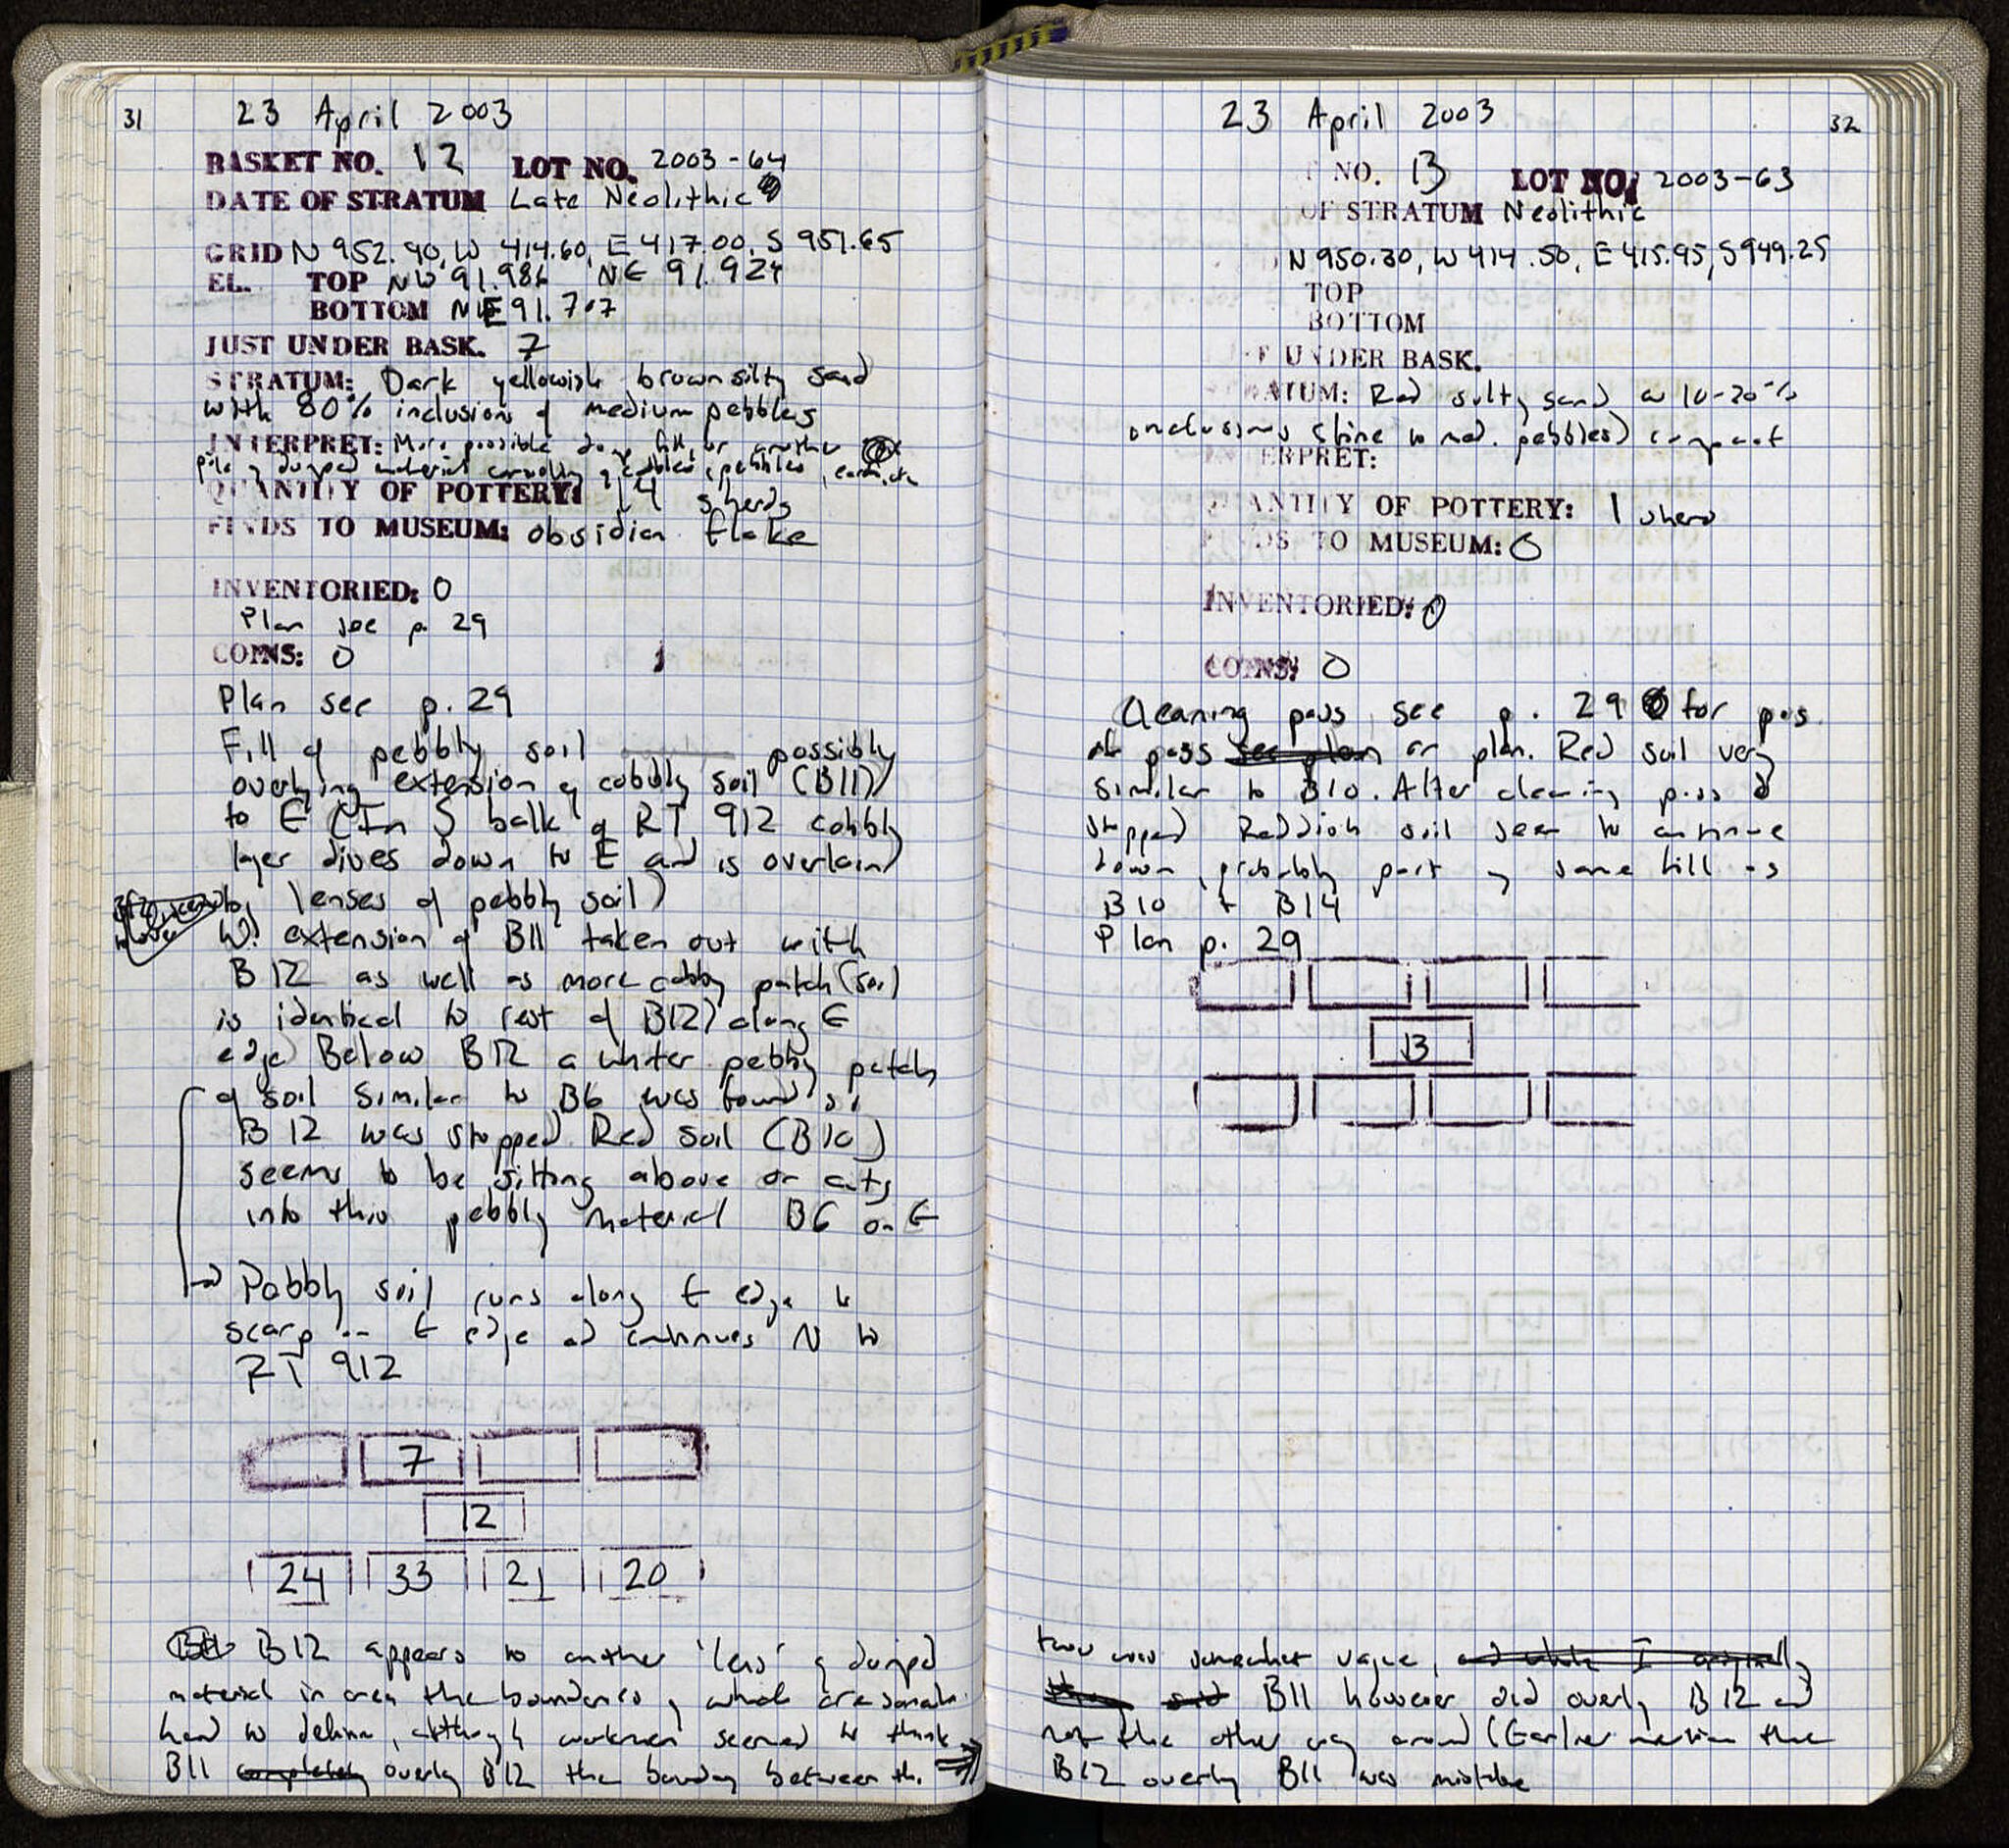 31
23 April 2003
BASKET NO. 12 LOT NO. 2003-64
DATE OF STRATUM Late Neolithic
GRID N 952.90, W 414.60, E 417.00, S 951.65
EL. TOP NW 91.986 NE 91.924
BOTTOM NE 91.707
JUST UNDER BASK. 7
STRATUM: Dark yellowish brown silty sand
with 80% inclusion of medium pebbles
INTERPRET: More possible dump fill, or another
pile of dumped material consisting of cobbles, pebbles, earth, etc
QUANTITY OF POTTERY: 14 sherds
FINDS TO MUSEUM: obsidian flake
INVENTORIED: 0
Plan see p. 29
COINS: 0
Plan see p. 29
Fill of pebbly soil possibly
overlying extension of cobbly soil (B11)
to E (In S balk of RT 912 cobbly
layer dives down to E and is overlain
by lenses of pebbly soil)
W. extension of B11 taken out with
B12 as well as more cobbly patch (soil
is identical to rest of B12) along E
edge Below B12 a whiter pebbly patch
of soil similar to B6 was found so
B12 was stopped. Red soil (B10)
seems to be sitting above or cuts
into this pebbly material B6 on E
→ Pebbly soil runs along E edge to
scarp on E edge and continues N to
RT 912
7
12
24 33 21 20
B12 appears to another 'lens' of dumped
material in area the boundaries of which are somewhat
hard to define, although workmen seemed to think
B11 completely overlay B12 the boundary between th.
32
23 April 2003
NO. 13 LOT NO. 2003-63
OF STRATUM Neolithic
N 950.30, W 414.50, E 415.95, S 949.25
TOP
BOTTOM
UNDER BASK.
ATUM: Red silty sand w 10-20%
inclusions (fine to med. pebbles) compact
ERPRET:
ANTITY OF POTTERY: 1 sherd
DS TO MUSEUM: 0
INVENTORIED: 0
COINS: 0
Cleaning pass, see p. 29 for pos.
of pass see plan on plan. Red soil very
similar to B10. After cleaning pass
stopped Reddish soil seem to continue
down, probably part of same fill as
B10 + B14
Plan p. 29
13
two was somewhat vague, and while I originally
B11 however did overly B12 and
not the other way around (Earlier mention that
B12 overly B11 was mistake